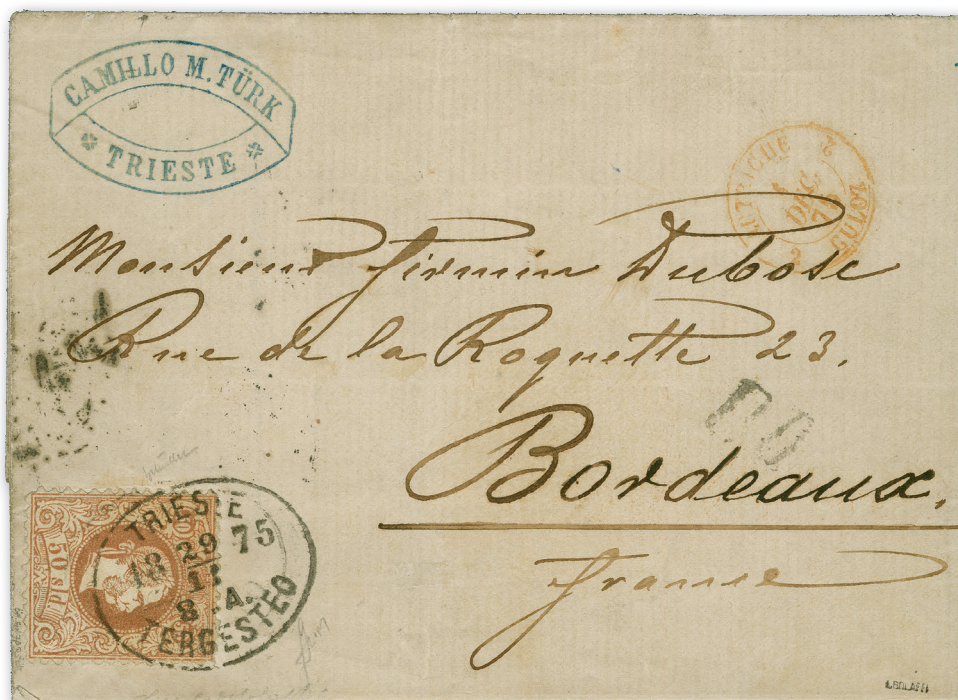 CAMILLO M. TÜRK
TRIESTE
AUTRICHE
2
DEC.
75
CULOZ
2
Monsieur Firmin Dubosc
Rue de la Roquette 23.
P.D
Bordeaux.
France
50 sld
TRIESTE
18 29 75
8 A.
TERGESTEO